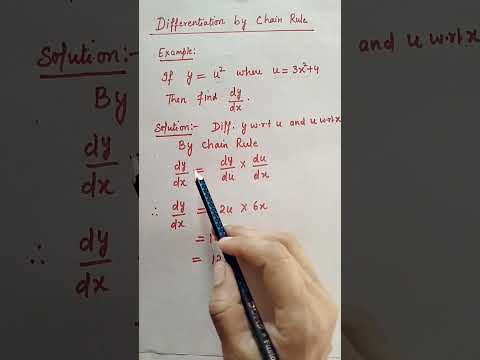 Differentiation by Chain Rule
Example:
If y = u² where u = 3x²+4
Then find dy/dx.
Solution:- Diff. y w.r.t u and u w.r.t x
By Chain Rule
dy/dx = dy/du × du/dx
∴ dy/dx = 2u × 6x
= 1
= 12